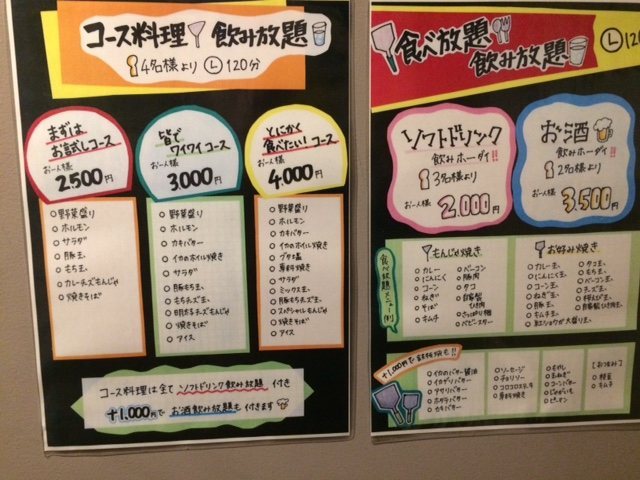 コース料理 飲み放題
4名様より 120分
まずは
お試しコース
お一人様
2,500円
野菜盛り
ホルモン
サラダ
豚玉
もち玉
カレーチーズもんじゃ
焼きそば
皆で
ワイワイコース
お一人様
3,000円
野菜盛り
ホルモン
カキバター
イカのホイル焼き
サラダ
豚もち玉
もちチーズ玉
明太チーズもんじゃ
焼きそば
アイス
とにかく
食べたい!コース
お一人様
4,000円
野菜盛り
ホルモン
カキバター
イカのホイル焼き
ブタ塩
厚切焼き
サラダ
ミックス玉
豚もちチーズ玉
スペシャルもんじゃ
焼きそば
アイス
コース料理は全てソフトドリンク飲み放題付き
+1,000円でお酒飲み放題も付きます
食べ放題
飲み放題
ソフトドリンク
飲みホーダイ!!
3名様より
お一人様 2,000円
お酒
飲みホーダイ!!
2名様より
お一人様 3,500円
食べ放題メニュー(例)
もんじゃ焼き
カレー
にんにく
コーン
ねぎ
そば
キムチ
ベーコン
豚肉
タコ
自家製
ひき肉
さっぱり梅
ベビースター
お好み焼き
カレー玉
にんにく玉
コーン玉
ねぎ玉
豚玉
キムチ玉
紅ショウガ大盛り玉
タコ玉
もち玉
ベーコン玉
チーズ玉
桜えび玉
自家製
ひき肉玉
+1,000円で鉄板焼も!!
イカのバター醤油
イカゲソバター
アサリバター
ホタテバター
カキバター
ソーセージ
チョリソー
コロコロステーキ
厚切焼き
もやし
玉ねぎ
コーンバター
じゃがいも
ピーマン
[おつまみ]
枝豆
キムチ